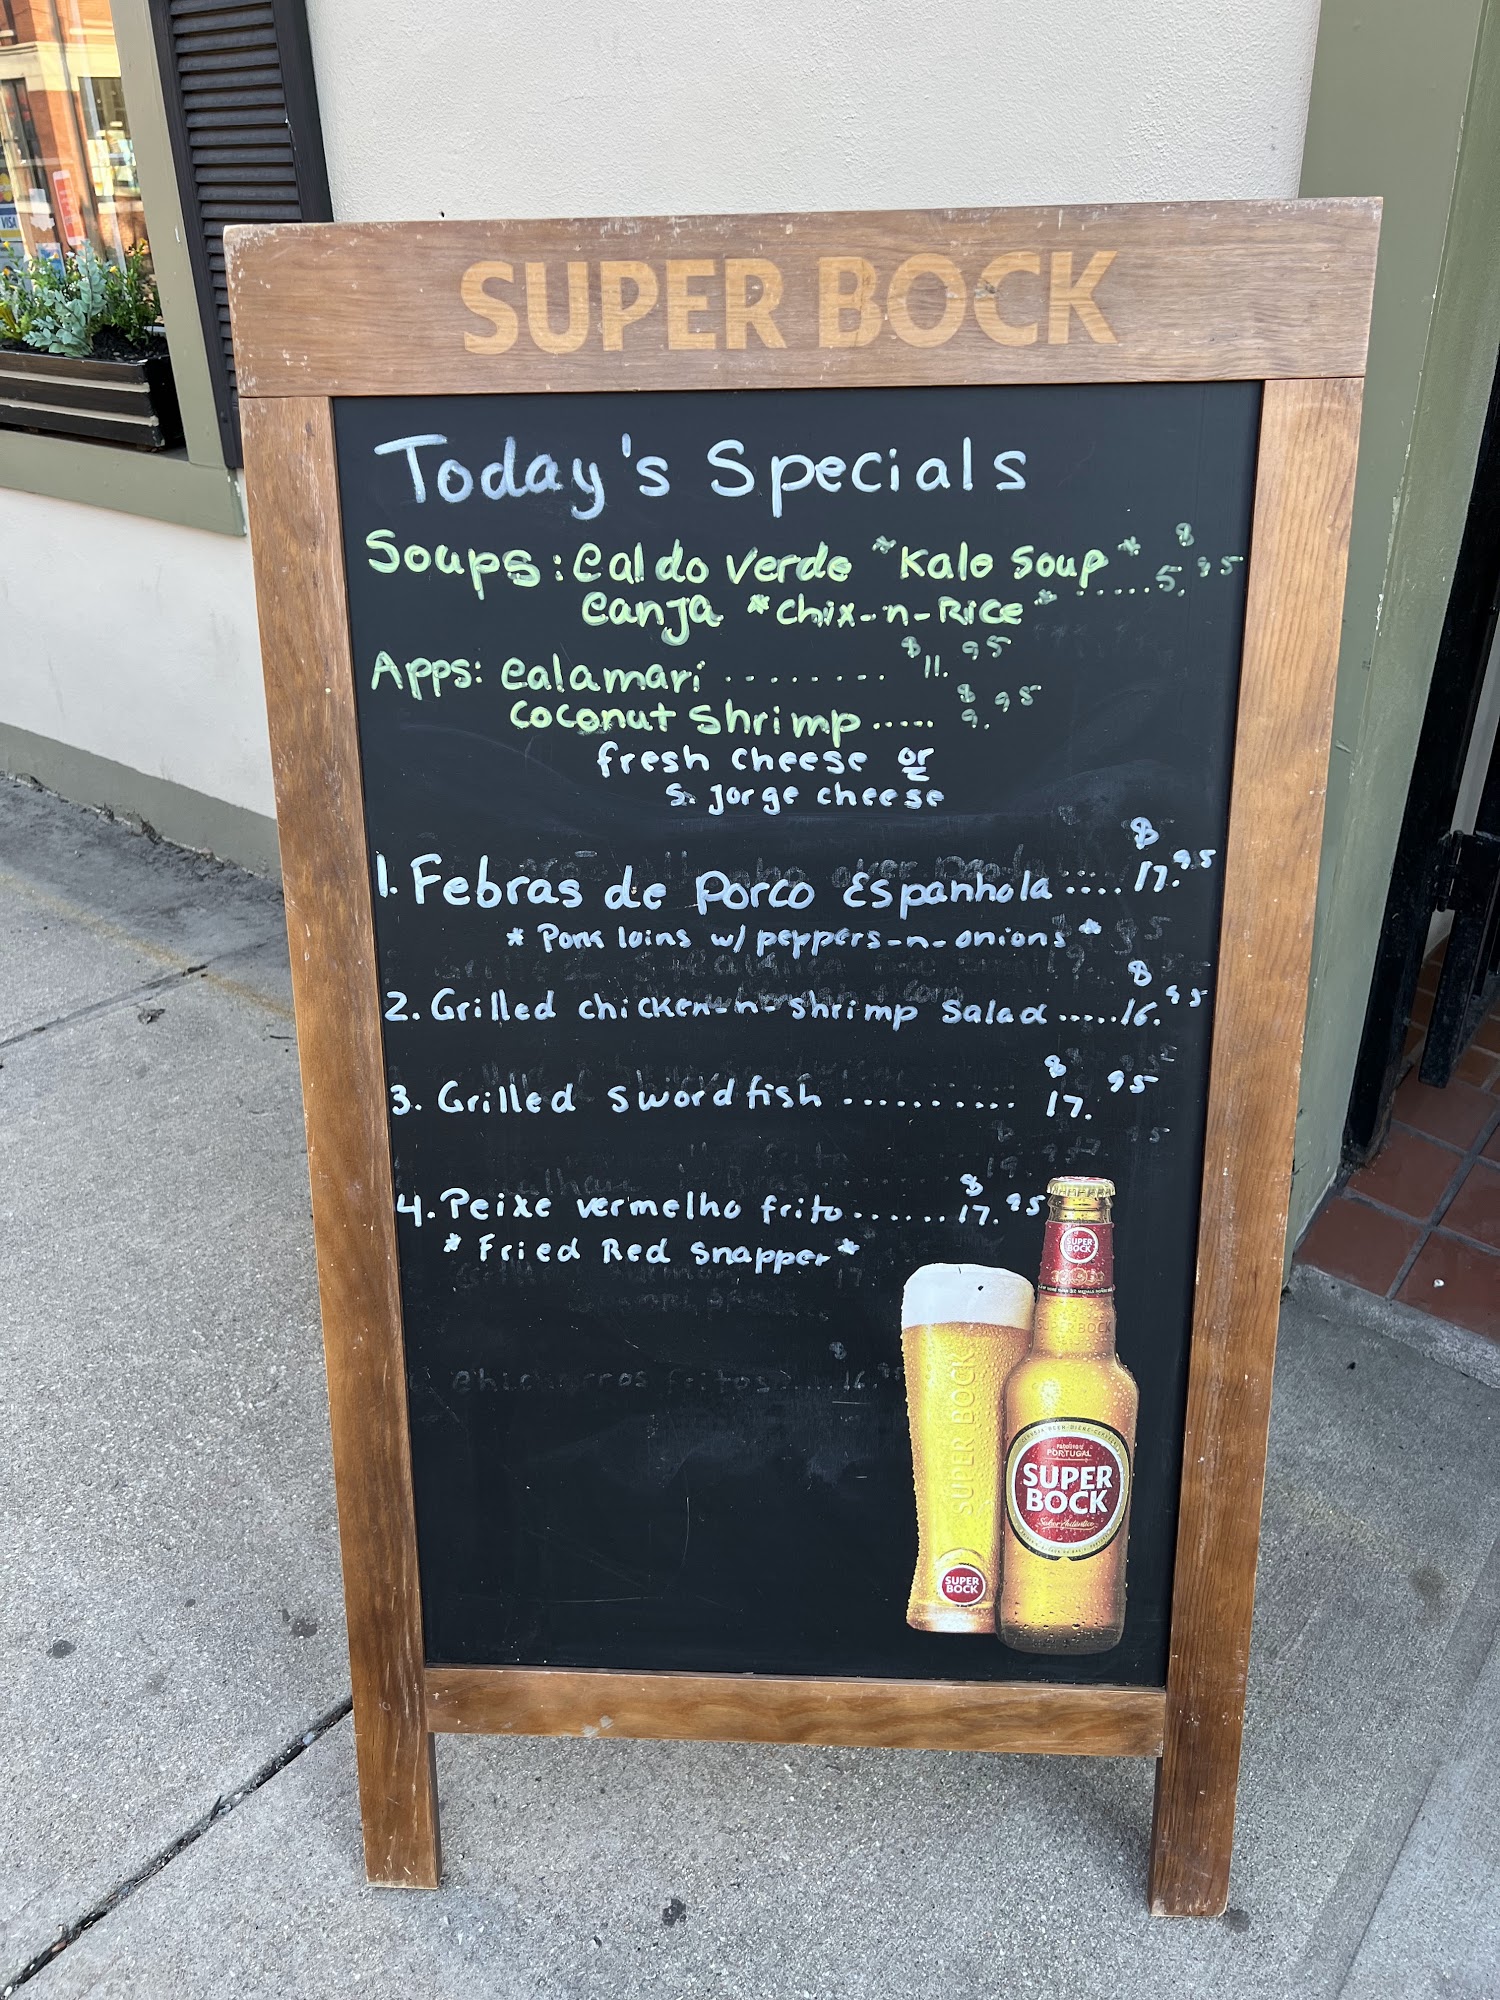 SUPER BOCK
Today's Specials
Soups: Caldo Verde *Kale Soup* ..... $5.95
Canja *Chix-n-Rice*
Apps: Calamari ........ $11.95
Coconut Shrimp ..... $9.95
fresh cheese or
S. Jorge cheese
1. Febras de Porco Espanhola ..... $17.95
* Pork loins w/ peppers-n-onions *
2. Grilled chicken-n-shrimp Salad ..... 16.95
3. Grilled swordfish .......... $17.95
4. Peixe vermelho frito ....... $17.95
* Fried Red snapper *
Chicharros fritos ..... 16.
SUPER
BOCK
SUPER BOCK
PORTUGAL
SUPER
BOCK
Sabor Autêntico
SUPER BOCK
SUPER
BOCK
VISA